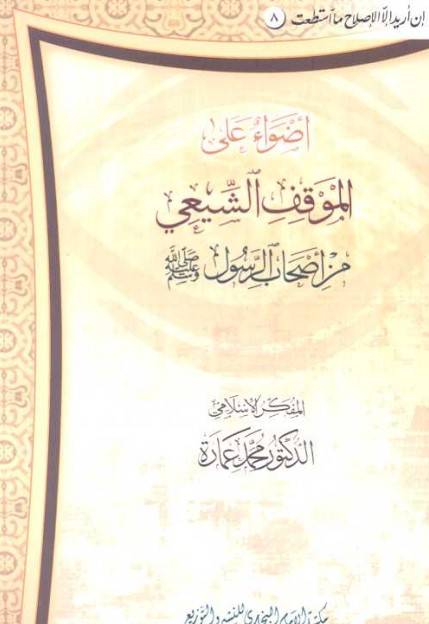 إن أريد إلا الإصلاح ما استطعت ٨
أضواء على
الموقف الشيعي
من أصحاب الرسول ﷺ
المفكر الإسلامي
الدكتور محمد عمارة
مكتبة الإمام البخاري للنشر والتوزيع